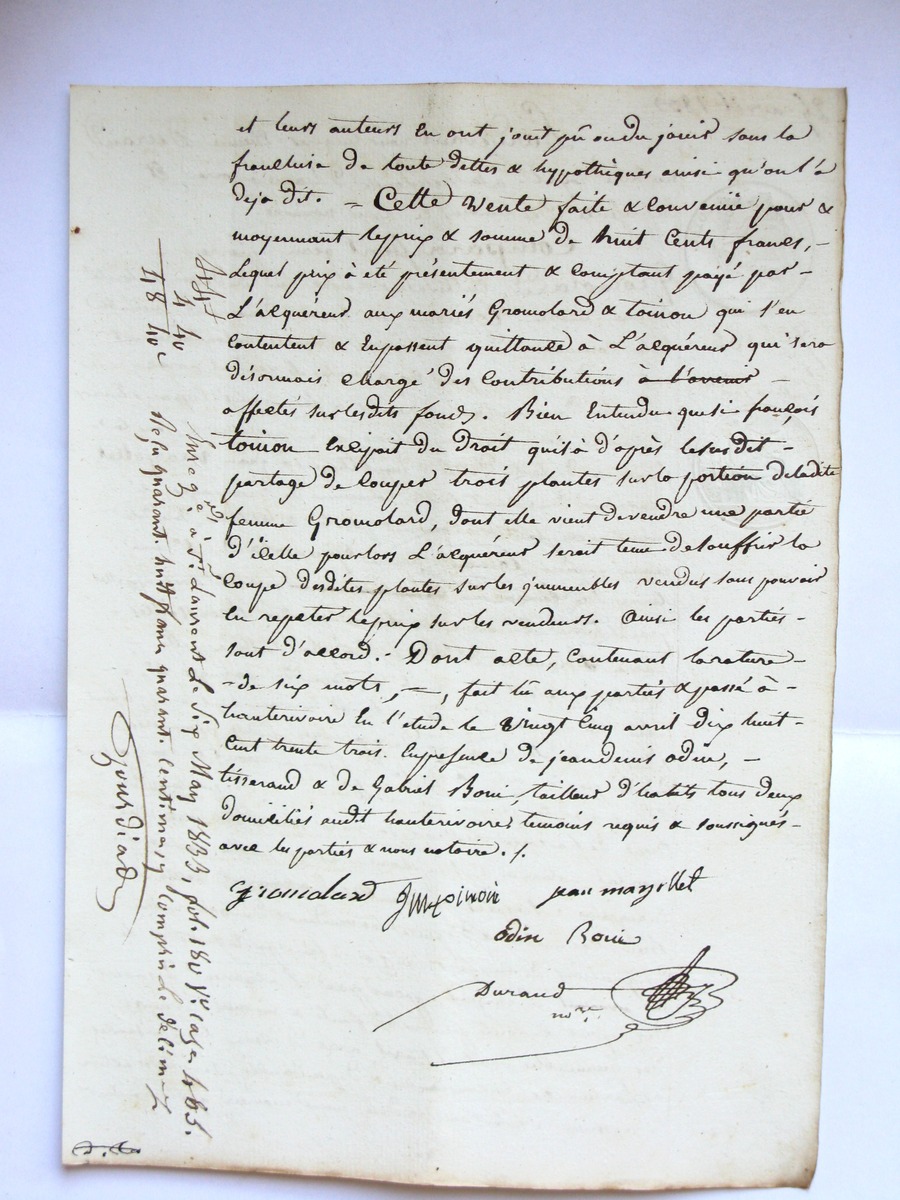 et leurs auteurs en ont joui pû ou du jouir sous la
franchise de toute dettes & hypothèques ainsi qu'on l'a
deja dit. = Cette vente faite & convenüe pour &
moyennant le prix & somme de huit Cents francs, -
Lequel prix à été présentement & comptant payé par -
L'acquéreur aux mariés Gromolard & toinon qui s'en
contentent & en passent quittance à L'acquéreur qui sera
désormais chargé des Contributions à l'avenir -
affectés sur lesdits fonds. Bien entendu que si françois
toinon exijoit du droit qu'il à d'après le susdit -
partage de couper trois plantes sur la portion de ladite
femme Gromolard, dont elle vient de vendre une partie
d'icelle pour lors L'acquéreur serait tenu de souffrir la
coupe desdites plantes sur les immeubles vendus sans pouvoir
en repeter le prix sur les vendeurs. Ainsi les parties -
sont d'accord. - Dont acte, contenant la rature -
- de six mots, —, fait lû aux parties & passé à -
hauterivoire en l'etude le vingt cinq avril dix huit -
cent trente trois. en presence de jean denis odin, -
tisserand & de Gabriel Boni, tailleur d'habits tous deux
domiciliés audit hauterivoire temoins requis & soussignés -
avec les parties & nous notaire. /.
gromolard jean mazillet
odin Boni
Durand
nore
44
4 40
48 40c
Enregé à St Laurent le Six May 1833, fol. 180 vo case 4 & 5.
Reçu quarant. huit francs quarant. centimes, y compris le décime
Gourdiad